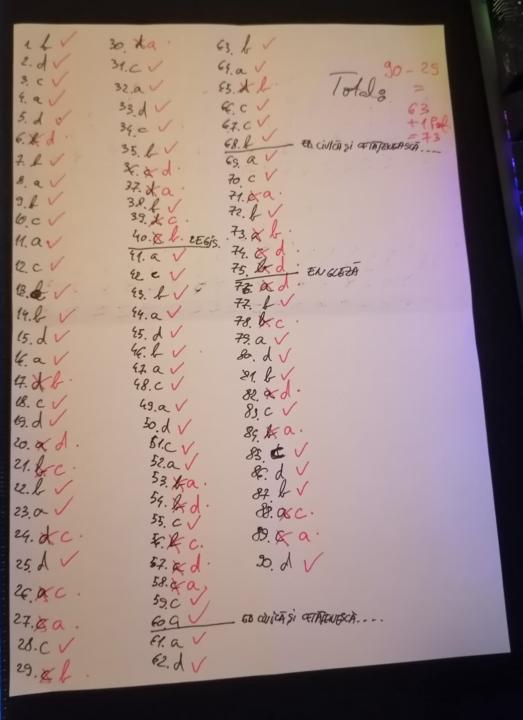 1. b ✓
2. d ✓
3. c ✓
4. a ✓
5. d ✓
6. b d.
7. b ✓
8. a ✓
9. b ✓
10. c ✓
11. a ✓
12. c ✓
13. b ✓
14. b ✓
15. d ✓
16. a ✓
17. d b.
18. c ✓
19. d ✓
20. a d.
21. b c.
22. b ✓
23. a ✓
24. d c.
25. d ✓
26. a c.
27. c a.
28. c ✓
29. c b.
30. d a.
31. c ✓
32. a ✓
33. d ✓
34. c ✓
35. b ✓
36. a d.
37. d a.
38. b ✓
39. d c.
40. c b. LEGIS.
41. a ✓
42. c ✓
43. b ✓
44. a ✓
45. d ✓
46. b ✓
47. a ✓
48. c ✓
49. a ✓
50. d ✓
51. c ✓
52. a ✓
53. b a.
54. b d.
55. c ✓
56. b c.
57. c d.
58. c a.
59. c ✓
60. a ✓ ED CIVICĂ ȘI
61. a ✓
62. d ✓
63. b ✓
64. a ✓
65. d b.
66. c ✓
67. c ✓
68. b ✓ ED CIVICĂ ȘI
69. a ✓
70. c ✓
71. c a.
72. b ✓
73. a b.
74. c d.
75. b d. ENGLEZĂ
76. a d.
77. b ✓
78. b c.
79. a ✓
80. d ✓
81. b ✓
82. a d.
83. c ✓
84. b a.
85. c ✓
86. d ✓
87. b ✓
88. a c.
89. c a.
90. d ✓
Total:
90 - 25
=
63
+1
= 73